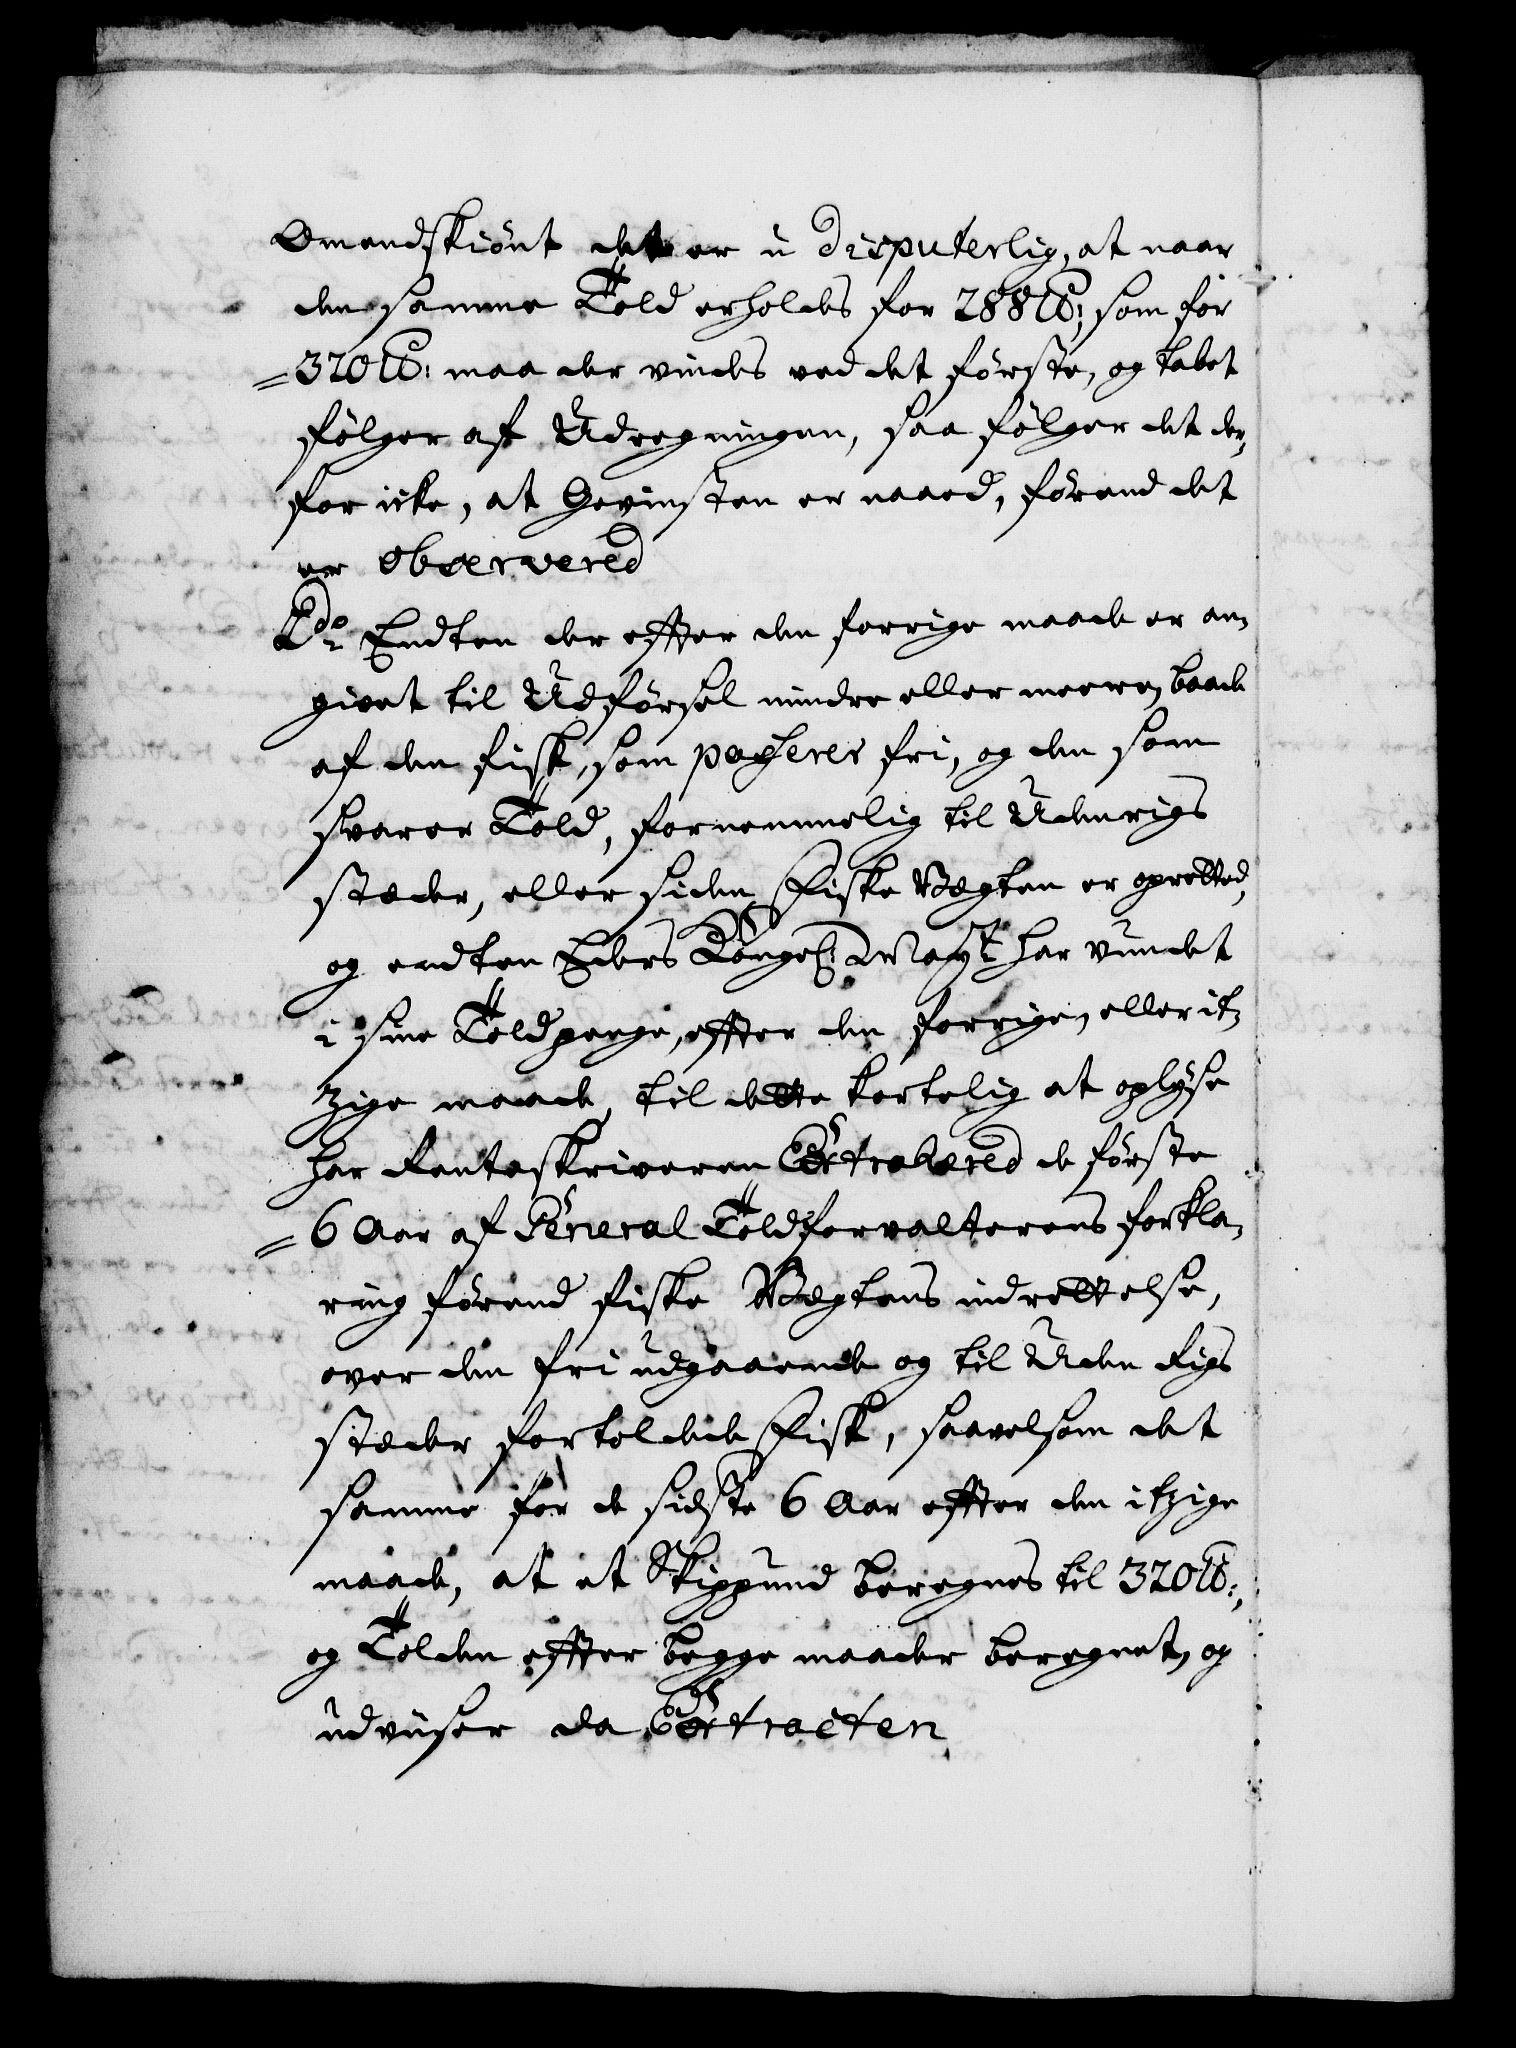 Omendskiönt det er ü disputerlig, at naar
den samme Told erholdes for 288 ℔; som for
320 ℔: maa der vindes ved det förste, og tabet
fölger af Üdregningen, saa fölger det der,
for icke, at Gevinsten er naaed, förend det
er observered
2do Endten der effter den forrige maade er an,
givet til Üdförsel mindre eller meere, baade
af den fisk, som passerer fri, og den som
svarer Told, fornemmelig til Üdenrigs
stæder, eller siden Fiske Vægten er oprettet,
og endten Eders Kongel: May:t har vündet
i sine Toldpenge, effter den forrige, eller itz
zige maade, til dette kortelig at oplyse
har Renteskriveren Extrahered de förste
6 Aar af General Toldforvalterens forkla,
ring förend fiske Vægtens indrettelse,
over den fri üdgaaende og til Üden Rigs
stæder fortoldede Fisk, saavelsom det
samme for de sidste 6 Aar effter den itzige
maade, at et Skippünd beregnes til 320 ℔:,
og Tolden effter begge maader beregnet, og
üdviiser da Extracten